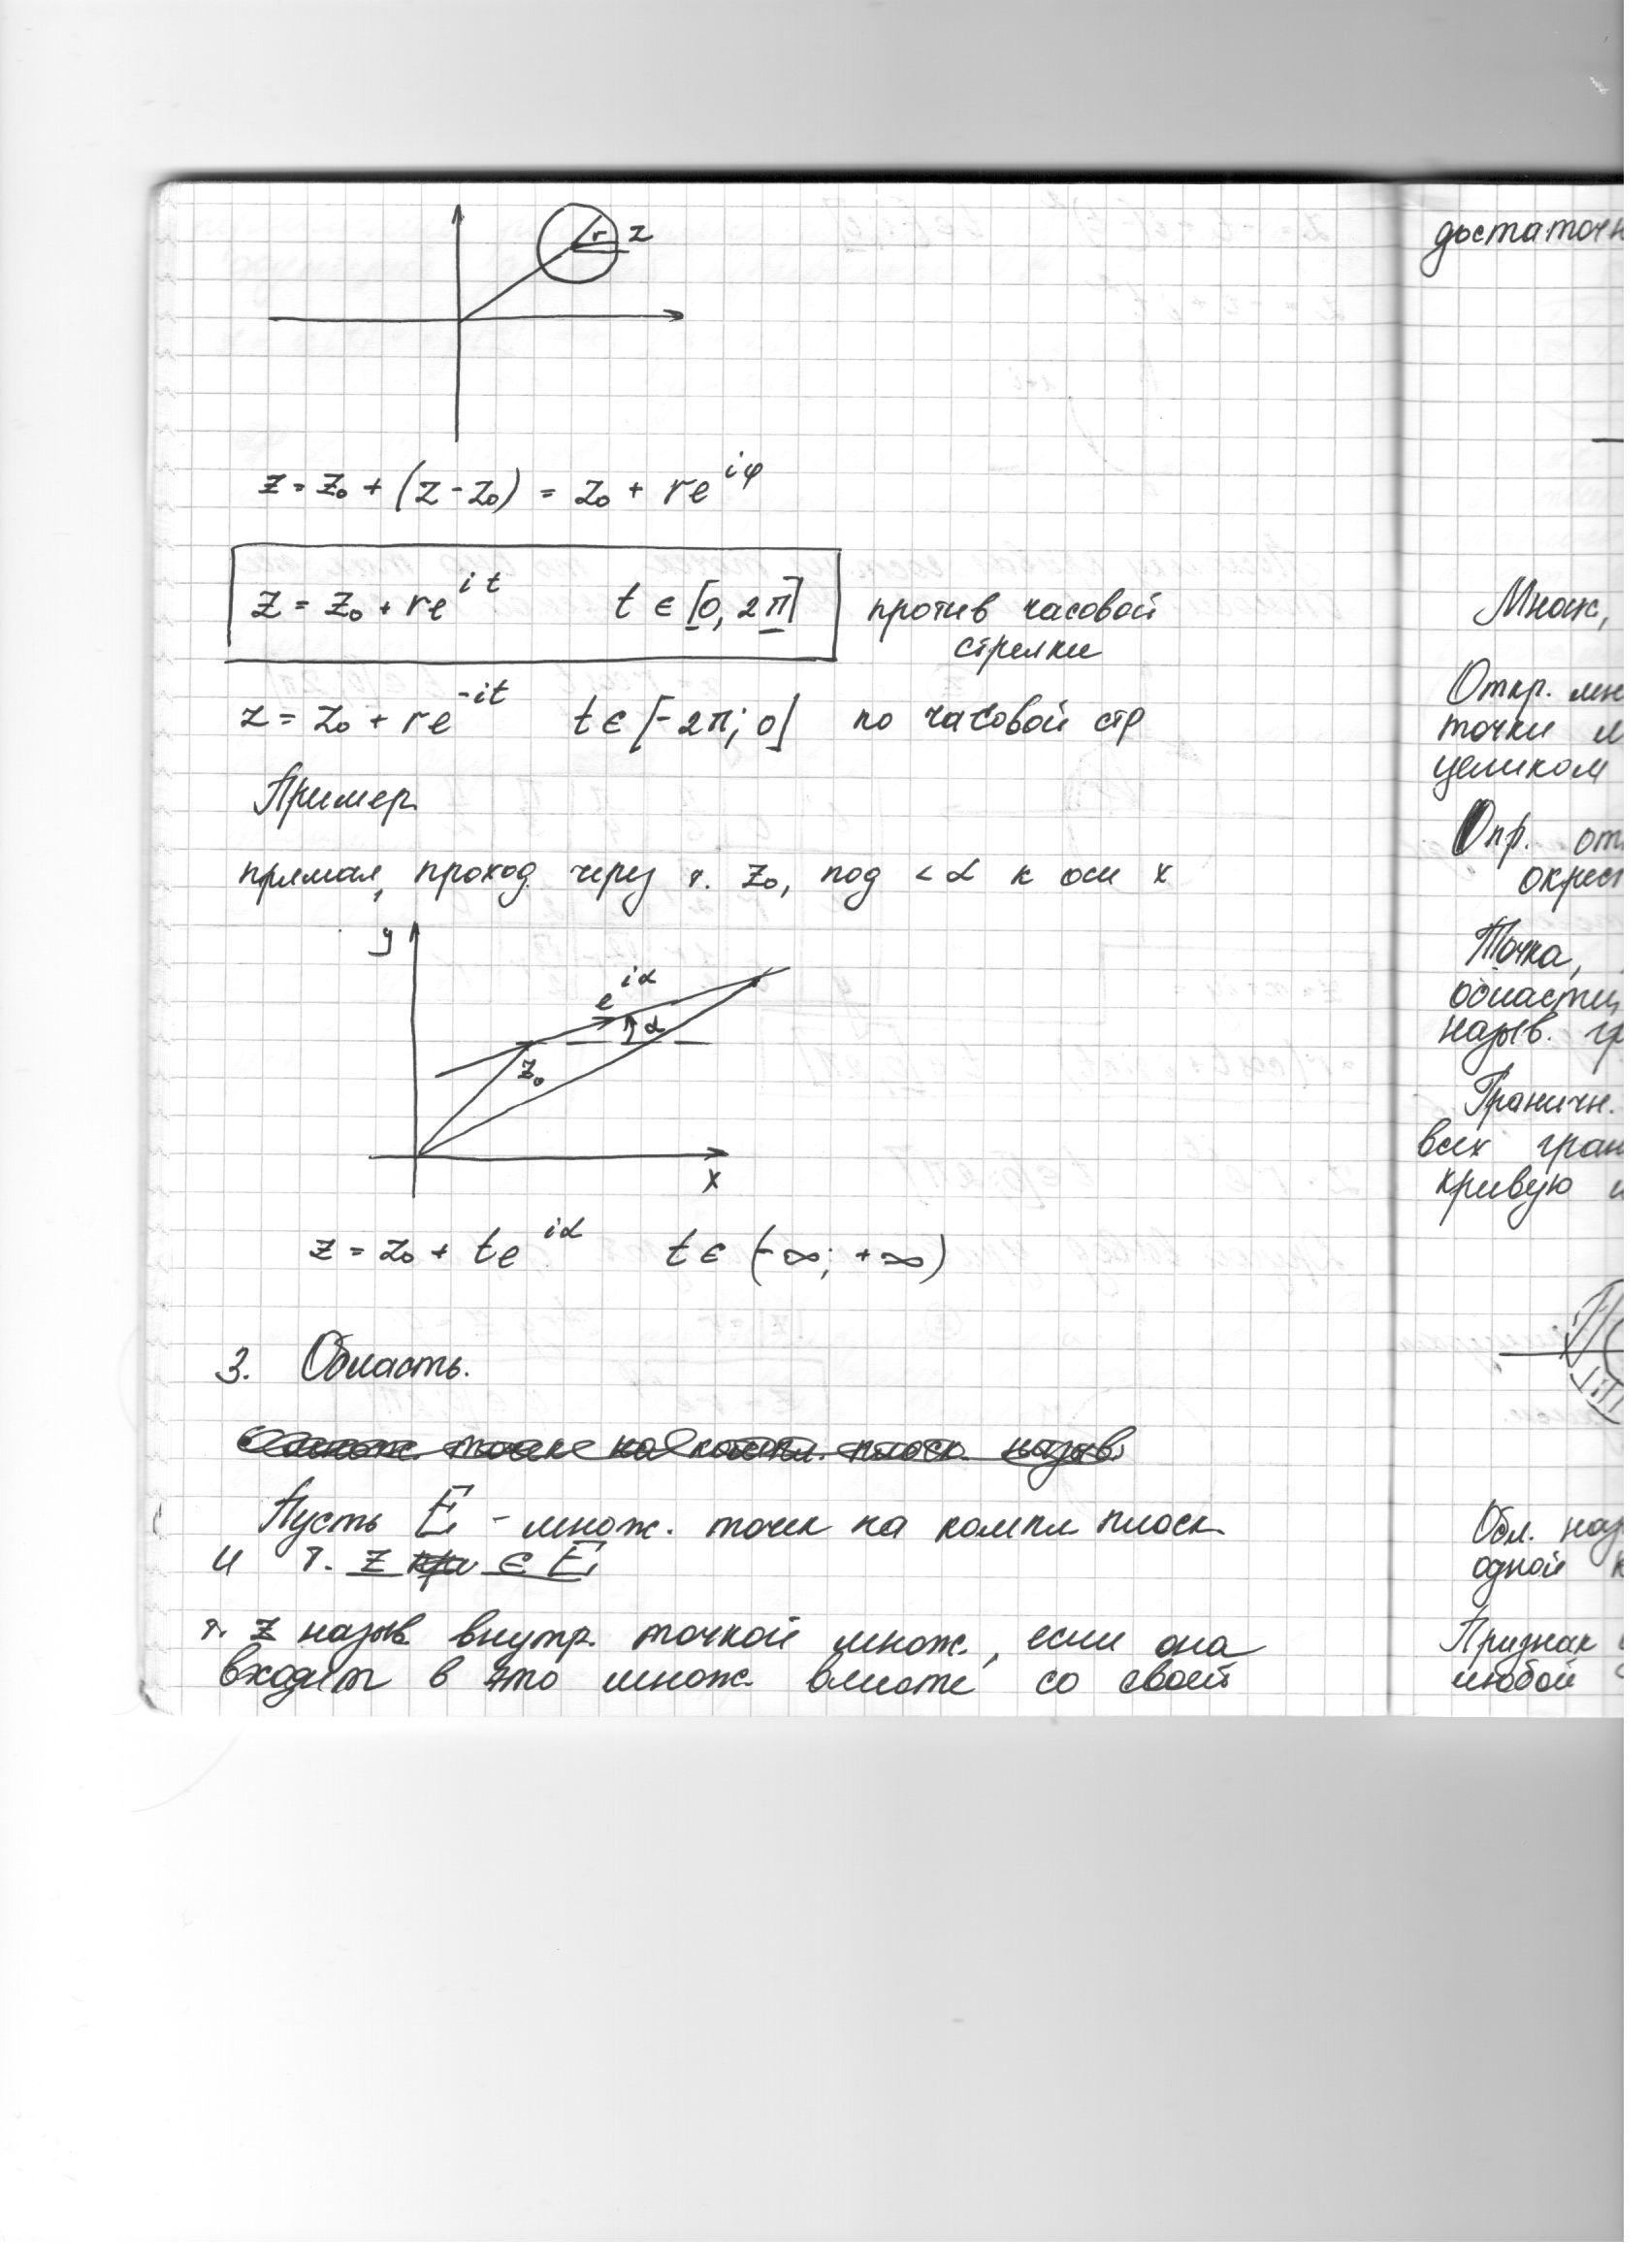 r z
z = z₀ + (z - z₀) = z₀ + re^{iφ}
z = z₀ + re^{it} t ∈ [0, 2π] против часовой
стрелки
z = z₀ + re^{-it} t ∈ [-2π; 0] по часовой стр
Пример.
прямая, проход. через т. z₀, под < α к оси x
y
e^{iα}
α
z₀
x
z = z₀ + te^{iα} t ∈ (-∞; +∞)
3. Область.
множ. точек на компл. плоск. назыв.
Пусть E - множ. точек на компл плоск.
и т. z ∈ E
т. z назыв. внутр. точкой множ., если она
входит в это множ. вместе со своей
достаточн
Множ,
Откр. мн
точки м
целиком
Опр. от
окрес
Точка,
области,
назыв. гр
Граничн.
всех гран
кривую и
Обл. наз
одной к
Признак
любой